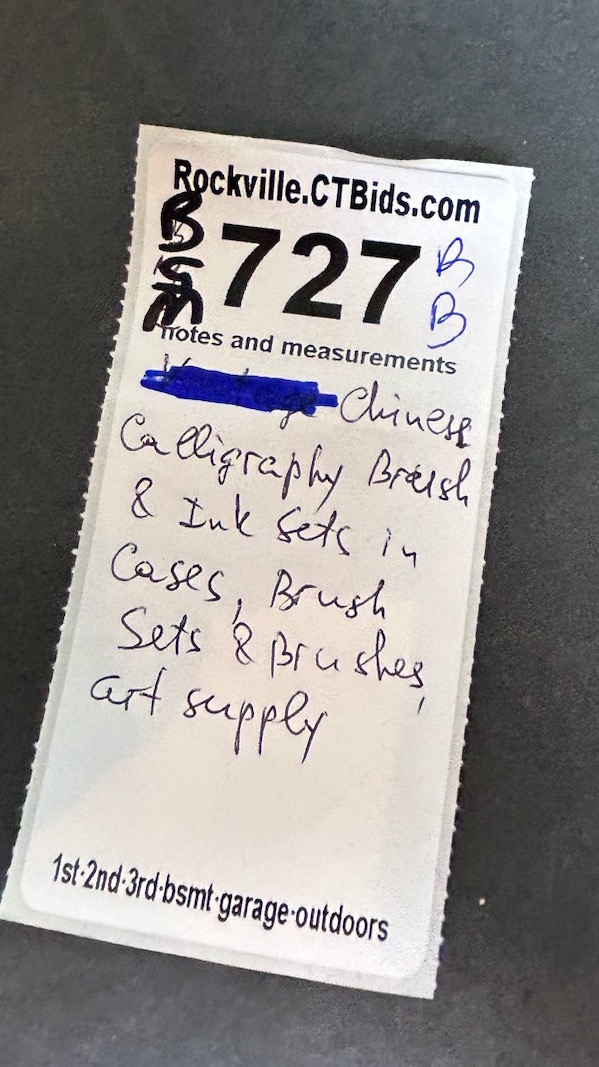 Rockville.CTBids.com
BSM 727 B B
notes and measurements
Chinese
Calligraphy Brush
& Ink Sets in
Cases, Brush
Sets & Brushes,
art supply
1st·2nd·3rd·bsmt·garage·outdoors